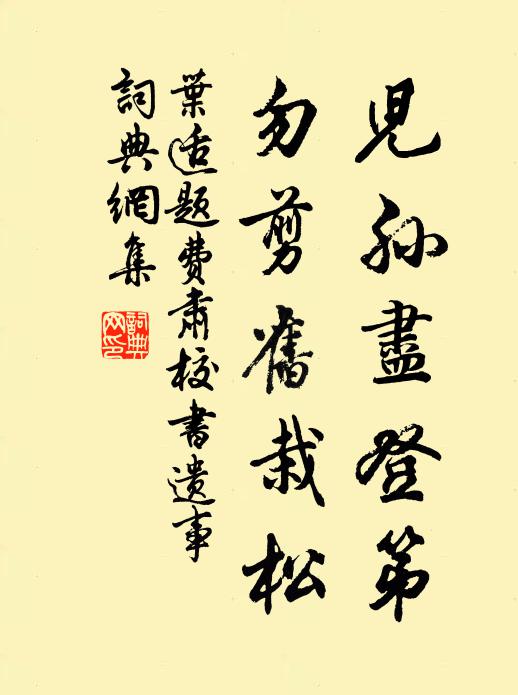 兒孫盡登第
勿剪舊栽松
葉适題費肅校書遺事
詞典網集
詞典網印